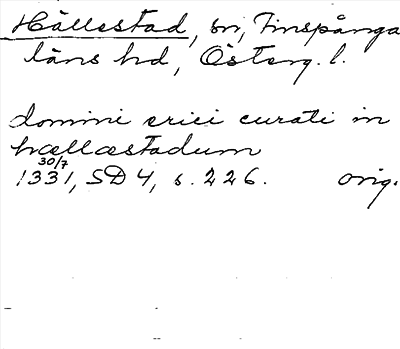 Hällestad, sn, Finspånga
läns hd, Österg. l.
domini erici curati in
hællæstadum
30/7
1331, SD 4, s. 226. orig.